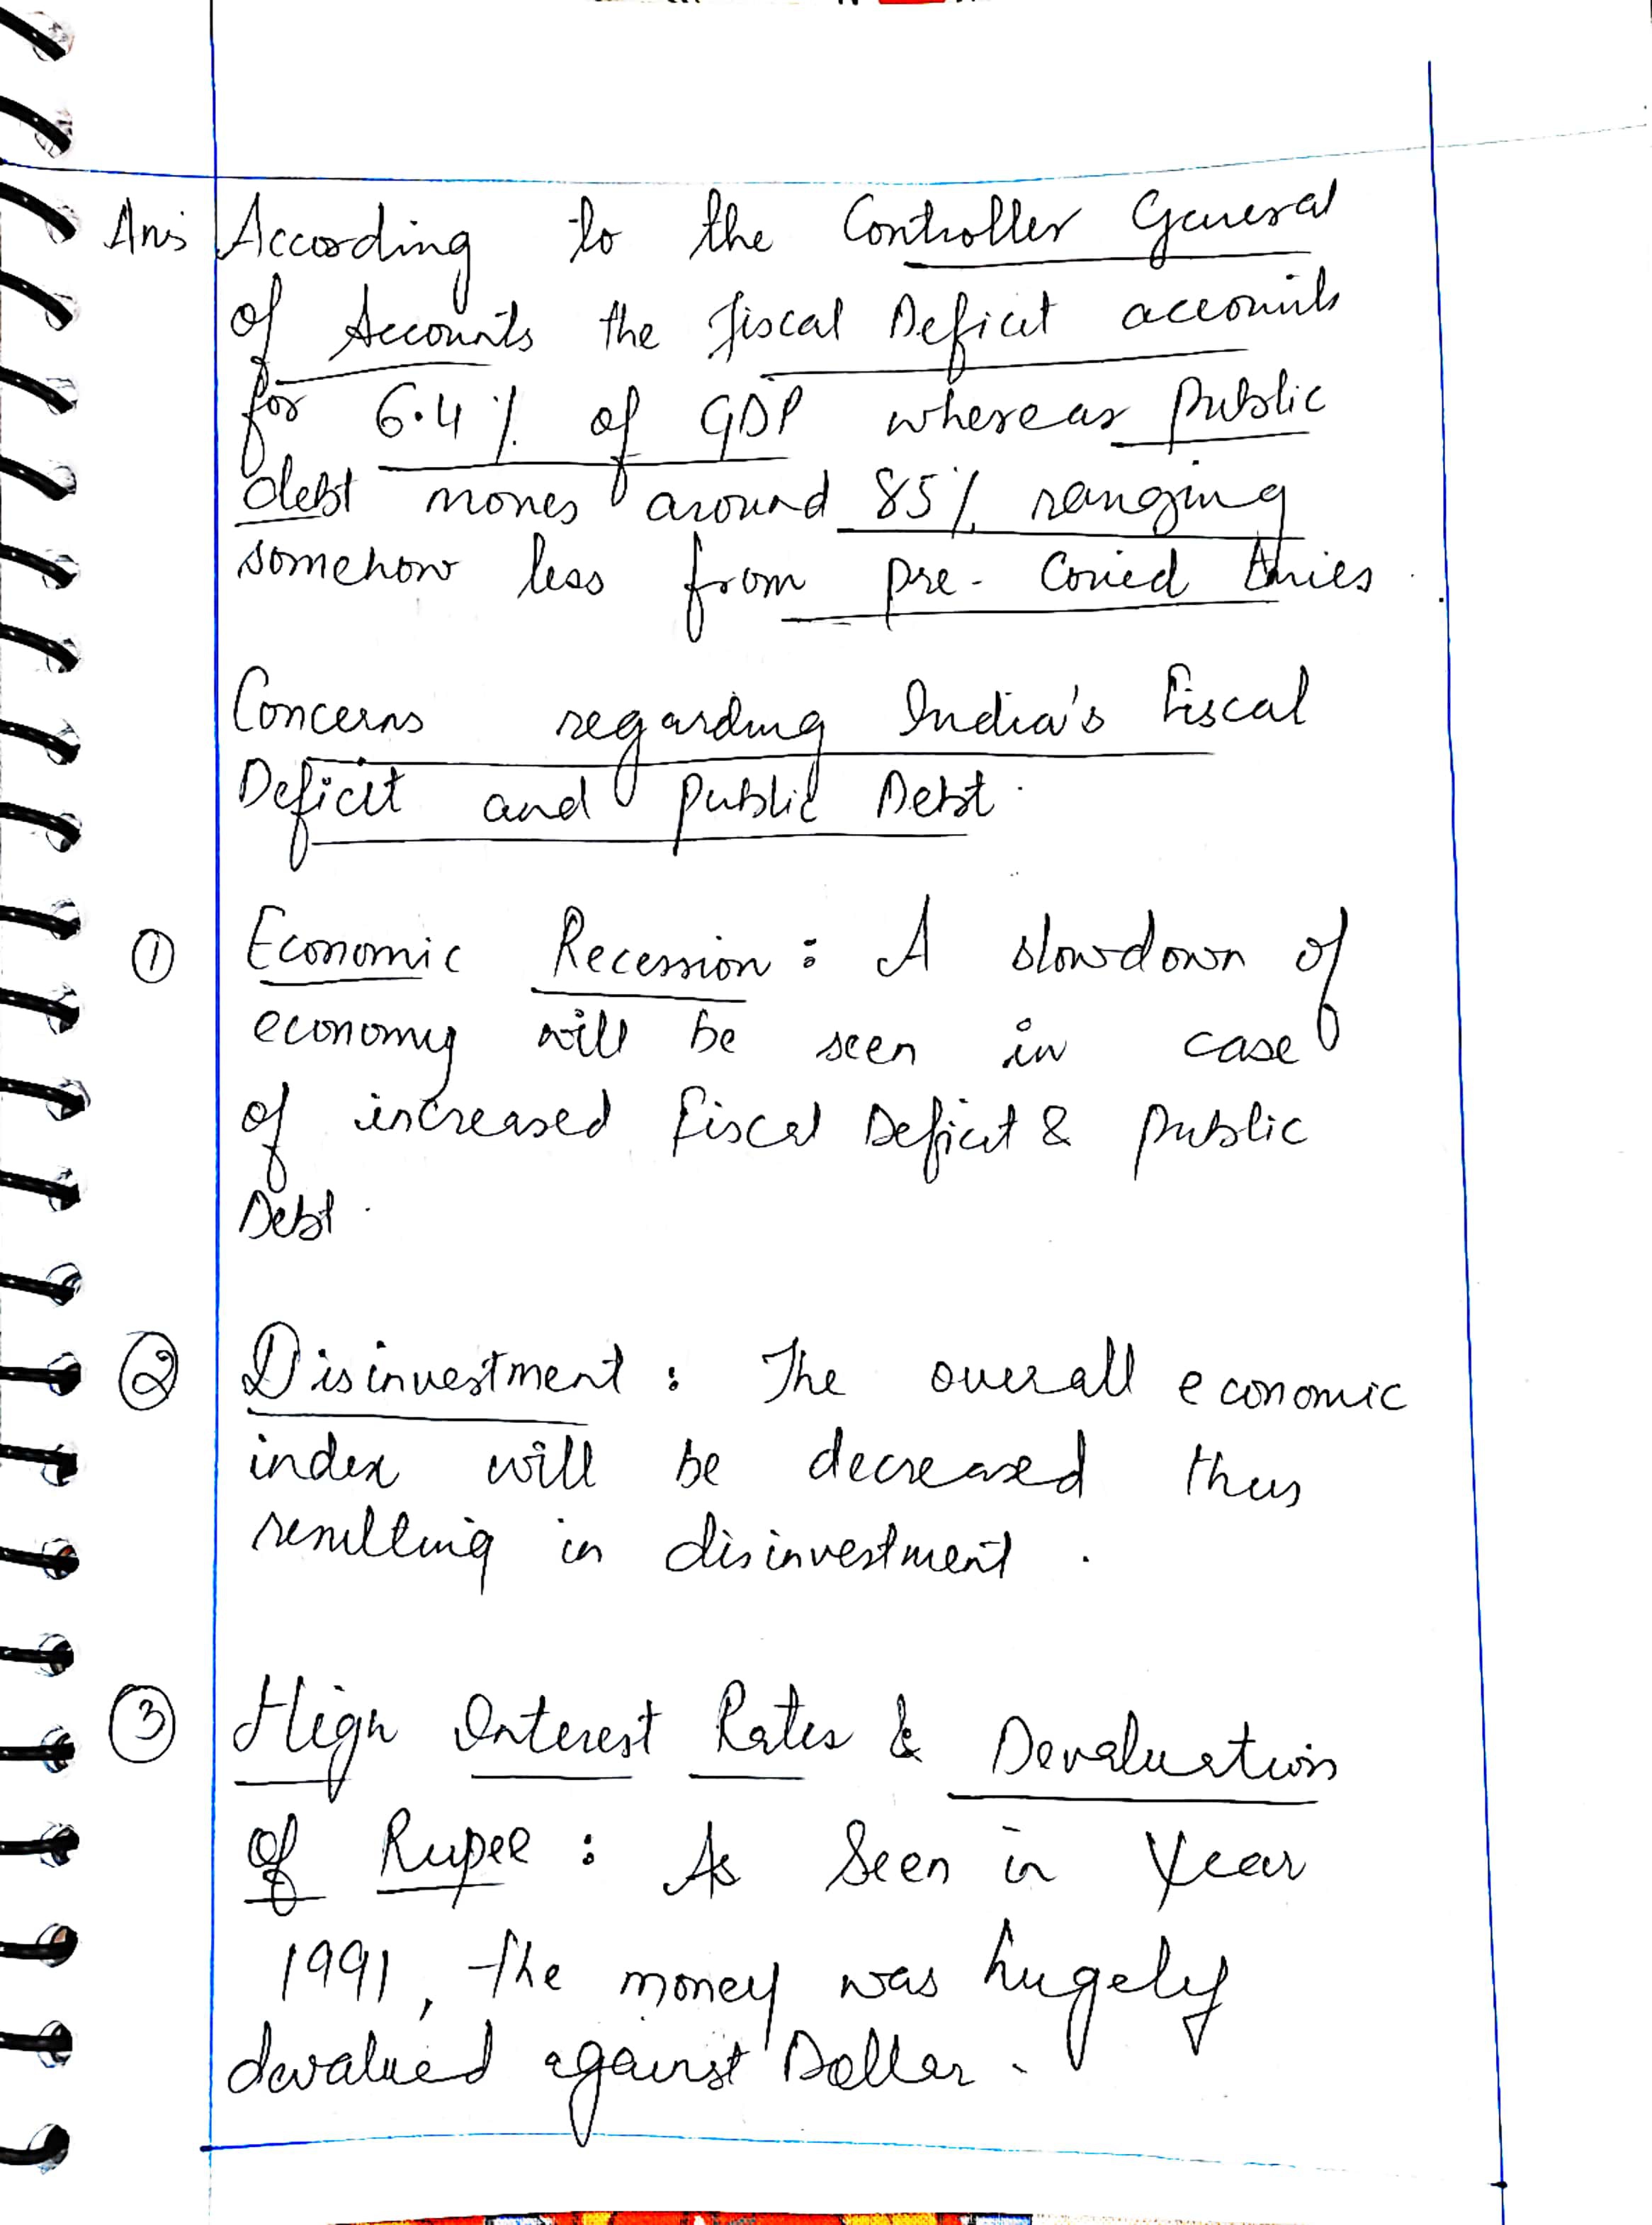 Ans According to the Controller General
of Accounts the fiscal Deficit accounts
for 6.4% of GDP whereas Public
debt moves around 85% ranging
somehow less from pre-Covied times.
Concerns regarding India's Fiscal
Deficit and Public Debt.
① Economic Recession: A slowdown of
economy will be seen in case
of increased Fiscal Deficit & Public
Debt.
② Disinvestment: The overall economic
index will be decreased thus
resulting in disinvestment.
③ High Interest Rates & Devaluation
of Rupee: As Seen in Year
1991, the money was hugely
devalued against Dollar.